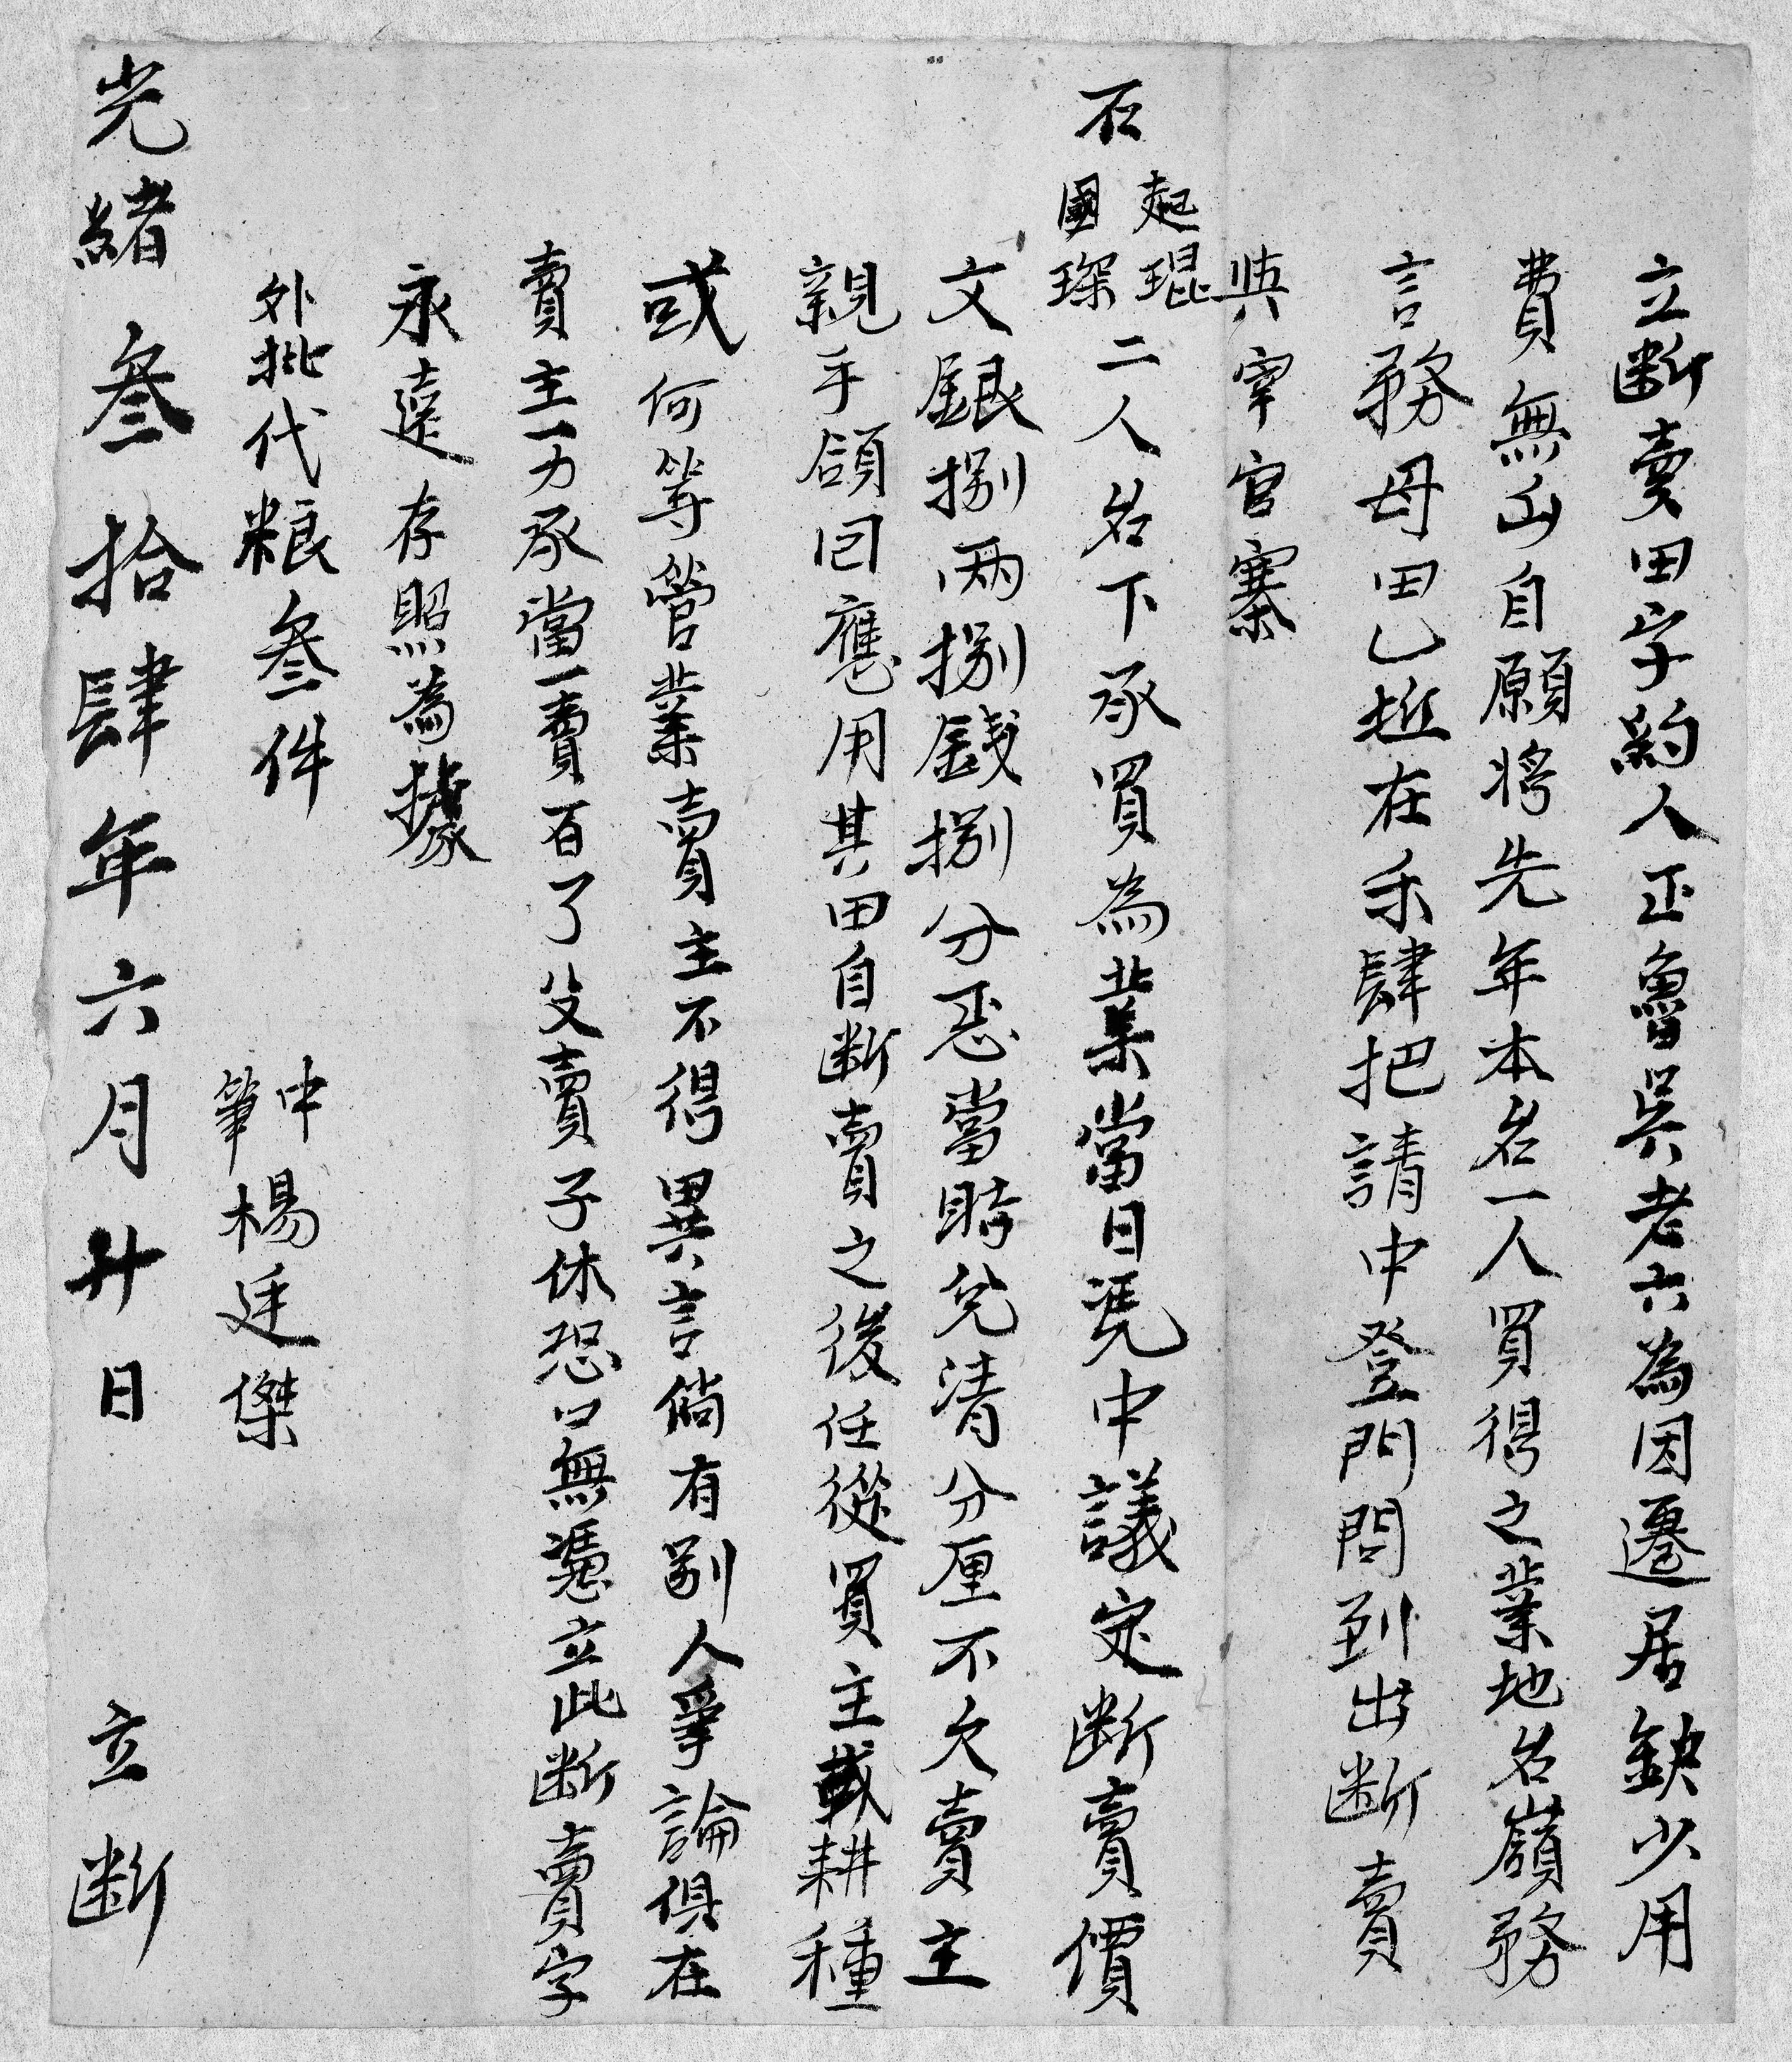 立断賣田字約人正魯吳老六為因遷居缺少用
費無出自願将先年本名一人買得之業地名嶺務
言務毋田乚坵在禾肆把請中登門問到出断賣
與宰官寨
石起琨國琛二人名下承買為業當日凭中議定断賣價
文銀捌两捌錢捌分正當時兌清分厘不欠賣主
親手領囘應用其田自断賣之後任從買主載耕種
或何等管業賣主不得異言倘有别人爭論俱在
賣主一力承當一賣百了父賣子休恐口無憑立此断賣字
永遠存照為據
外批代粮叁件
中筆楊廷傑
光緒叁拾肆年六月廾日 立断